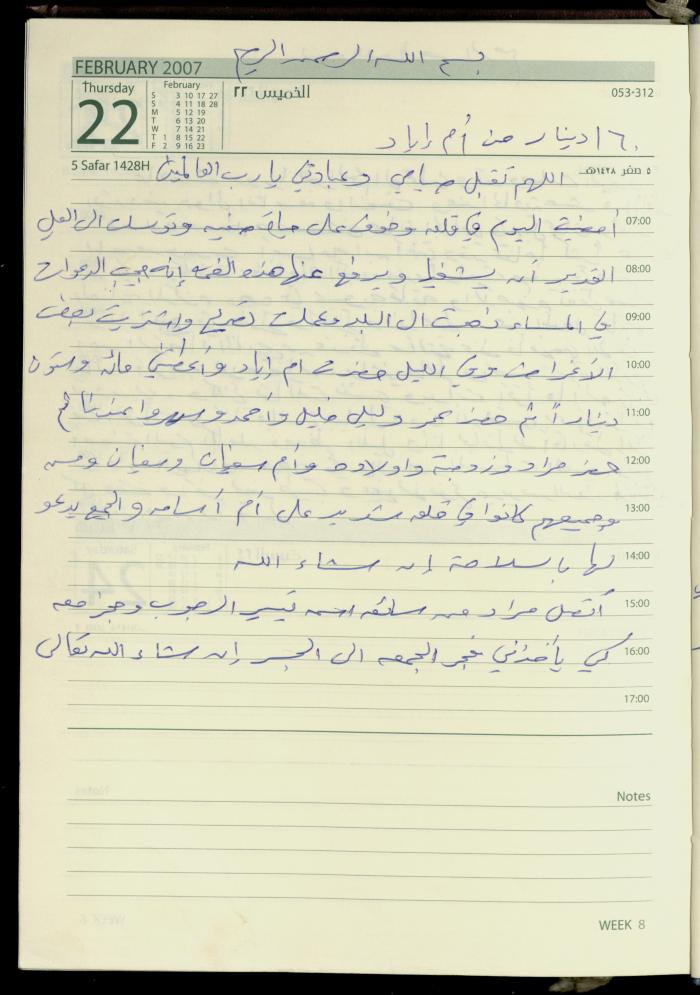 بسم الله الرحمن الرحيم
FEBRUARY 2007
Thursday
22
February
S 3 10 17 27
S 4 11 18 28
M 5 12 19
T 6 13 20
W 7 14 21
T 1 8 15 22
F 2 9 16 23
الخميس ٢٢
053-312
١٦٠ دينار من أم إياد
5 Safar 1428H
٥ صفر ١٤٢٨هـ
اللهم تقبل صيامي وعبادتي يا رب العالمين
07:00 أمضيت اليوم في قلق وخوف على حياة صفيه وتوسلت الى العلي
08:00 القدير أن يشفيها ويرفع عنها هذه الغمه إنه مجيب الدعوات
09:00 في المساء ذهبت الى البلد وعملت تصريح واشتريت بعض
10:00 الأغراض وفي الليل حضرت ام إياد وأعطتني مائه وستون
11:00 ديناراً ثم حضر عمر وليلى خليل وأحمد
12:00 حضر مراد وزوجته واولاده وأم سفيان وسفيان
13:00 وجميعهم كانوا في قلق شديد على أم أسامه والجميع يدعو
14:00 لها بالسلامة إن شاء الله
15:00 أتصل مراد مع سائق اسمه تيسير الرجوب
16:00 كي يأخذني فجر الجمعه الى الجسر إن شاء الله تعالى
17:00
Notes
WEEK 8